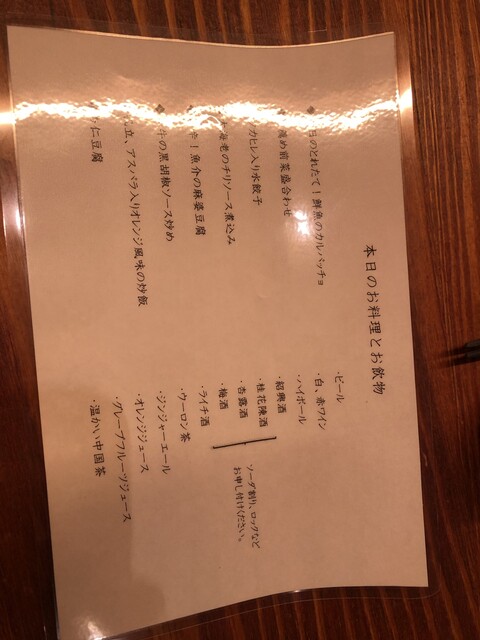 本日のお料理とお飲物
のとれたて！鮮魚のカルパッチョ
め前菜盛合わせ
カヒレ入り水餃子
海老のチリソース煮込み
！魚介の麻婆豆腐
牛の黒胡椒ソース炒め
立、アスパラ入りオレンジ風味の炒飯
仁豆腐
・ビール
・白、赤ワイン
・ハイボール
・紹興酒
・桂花陳酒
・杏露酒
・梅酒
・ライチ酒
ソーダ割り、ロックなど
お申し付けください。
・ウーロン茶
・ジンジャーエール
・オレンジジュース
・グレープフルーツジュース
・温かい中国茶